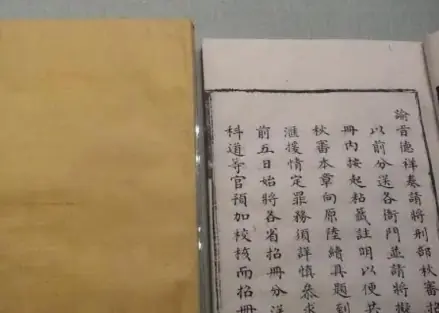 諭昔德祥奏請將刑部秋審招
以前分送各衙門並請將擬
冊內按起粘籤註明以便共
秋審本章向原陸續具題到
滙援情定罪務須詳慎恭求
前五日始將各省招冊分送
科道等官預加校核而招冊